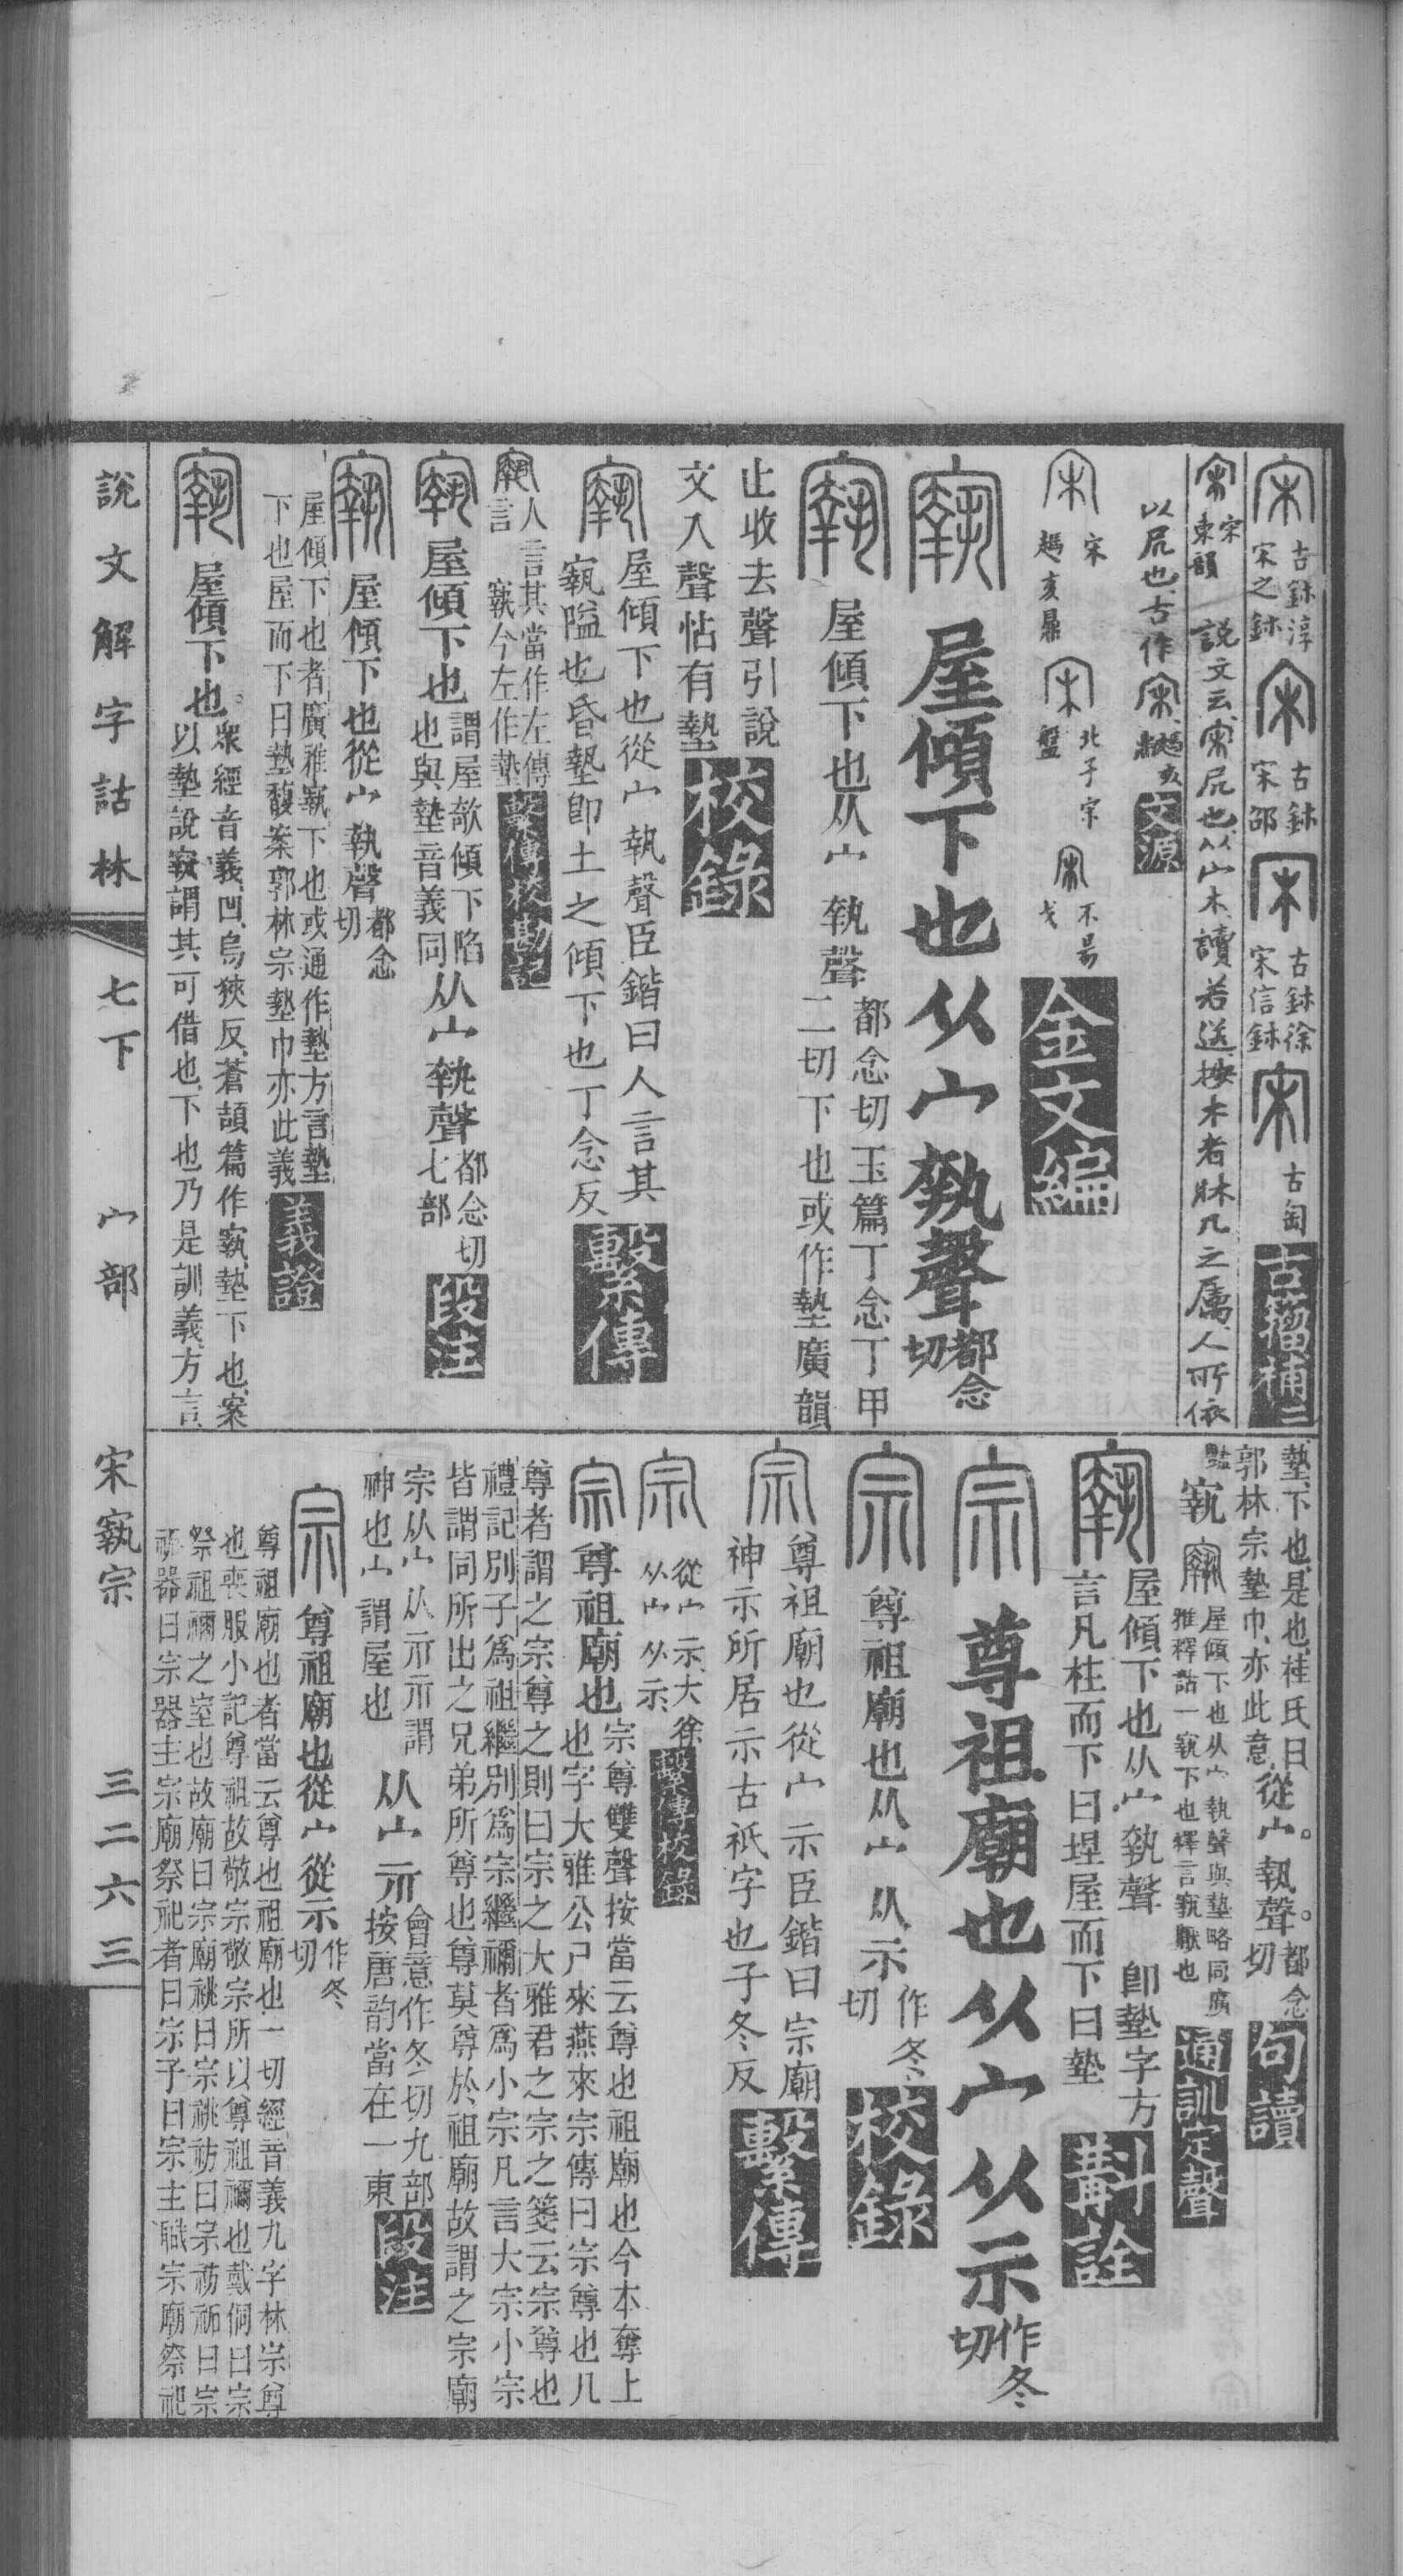 宋 古鉨淳
宋之鉨
古鉨
宋邵
古鉨徐
宋信鉨
古匋
古籀補二
宋
東韻
說文云宋凥也从宀木讀若送按木者牀几之屬人所依
以凥也古作 文源
宋
趞亥鼎
北子宋
盤
不昜
戈
金文編
屋傾下也从宀執聲都念
切
屋傾下也从宀執聲都念切玉篇丁念丁甲
二切下也或作墊廣韻
止收去聲引說
文入聲怗有墊校錄
屋傾下也從宀執聲臣鍇曰人言其
㝪隘也昏墊卽土之傾下也丁念反繫傳
人言其當作左傳
言㝪今左作墊繫傳校勘記
屋傾下也謂屋欹傾下陷
也與墊音義同从宀執聲都念切
七部段注
屋傾下也從宀執聲都念
切
屋傾下也者廣雅㝪下也或通作墊方言墊
下也屋而下曰墊馥案郭林宗墊巾亦此義義證
屋傾下也。衆經音義凹烏狹反蒼頡篇作㝪墊下也案
以墊說㝪謂其可借也下也乃是訓義方言
墊下也是也桂氏曰
郭林宗墊巾亦此意從宀。執聲。都念
切句讀
㝪屋傾下也从宀執聲與墊略同廣
雅釋詁一㝪下也釋言㝪厭也通訓定聲
屋傾下也从宀執聲 卽墊字方
言凡柱而下曰埕屋而下曰墊斠詮
宗尊祖廟也从宀从示作冬
切
宗尊祖廟也从宀从示作冬
切校錄
宗尊祖廟也從宀示臣鍇曰宗廟
神示所居示古祇字也子冬反繫傳
宗從宀示大徐
从宀从示繫傳校錄
宗尊祖廟也宗尊雙聲按當云尊也祖廟也今本奪上
也字大雅公尸來燕來宗傳曰宗尊也凡
尊者謂之宗尊之則曰宗之大雅君之宗之箋云宗尊也
禮記別子爲祖繼別爲宗繼禰者爲小宗凡言大宗小宗
皆謂同所出之兄弟所尊也尊莫尊於祖廟故謂之宗廟
宗从宀从示示謂
神也宀謂屋也从宀示會意作冬切九部
按唐韵當在一東段注
宗尊祖廟也從宀從示作冬
切
尊祖廟也者當云尊也祖廟也一切經音義九字林宗尊
也喪服小記尊祖故敬宗敬宗所以尊祖禰也戴侗曰宗
祭祖禰之室也故廟曰宗廟祧曰宗祧祊曰宗祊祏曰宗
祏器曰宗器主宗廟祭祀者曰宗子曰宗主職宗廟祭祀
說文解字詁林 七下 宀部 宋㝪宗 三二六三